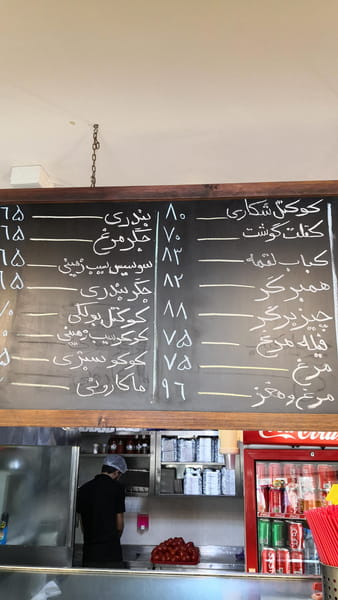 کوکتل شکاری ۸۰
کتلت گوشت ۷۰
کباب لقمه ۸۳
همبرگر ۸۲
چیزبرگر ۸۸
فیله مرغ ۷۵
مرغ ۷۵
مرغ و مغز ۹۶
بندری ۶۵
جگر مرغ ۶۵
سوسیس سیب زمینی ۶۵
جگر بندری ۶۵
کوکتل پولکی
کوکو سیب زمینی
کوکو سبزی ۵
ماکارونی
Coca-Cola